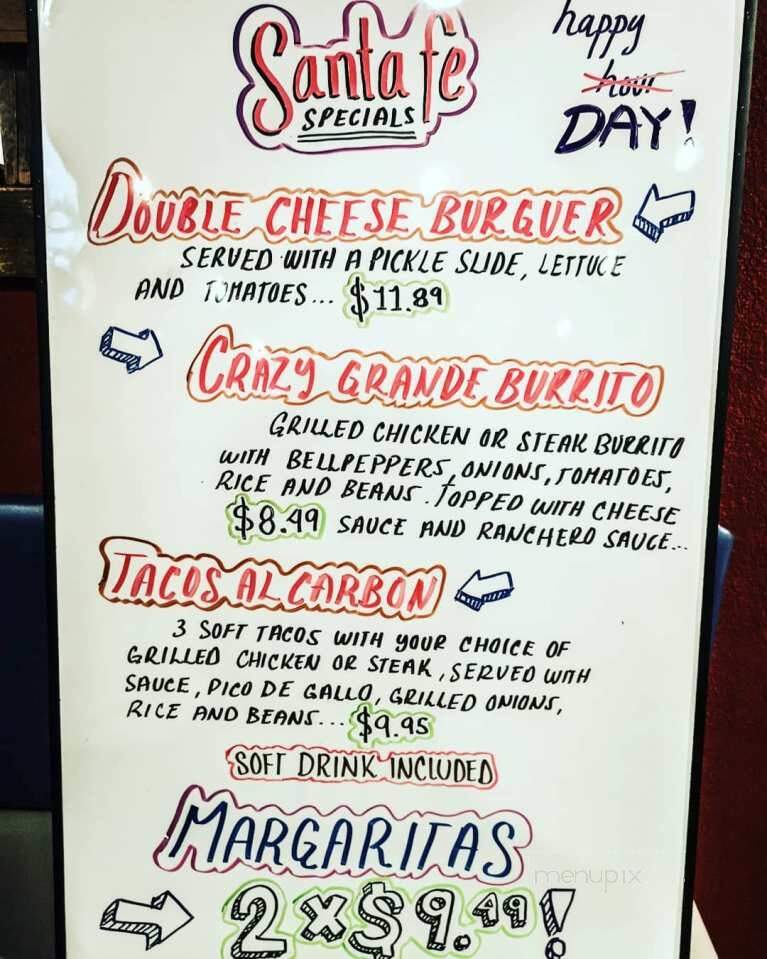 Santa fè
SPECIALS
happy
hour
DAY!
DOUBLE CHEESE BURGUER
SERVED WITH A PICKLE SLIDE, LETTUCE
AND TOMATOES... $11.89
CRAZY GRANDE BURRITO
GRILLED CHICKEN OR STEAK BURRITO
WITH BELLPEPPERS, ONIONS, TOMATOES,
RICE AND BEANS. TOPPED WITH CHEESE
$8.49 SAUCE AND RANCHERO SAUCE...
TACOS AL CARBON
3 SOFT TACOS WITH YOUR CHOICE OF
GRILLED CHICKEN OR STEAK, SERVED WITH
SAUCE, PICO DE GALLO, GRILLED ONIONS,
RICE AND BEANS... $9.95
SOFT DRINK INCLUDED
MARGARITAS
menupix
2 x $9.49!